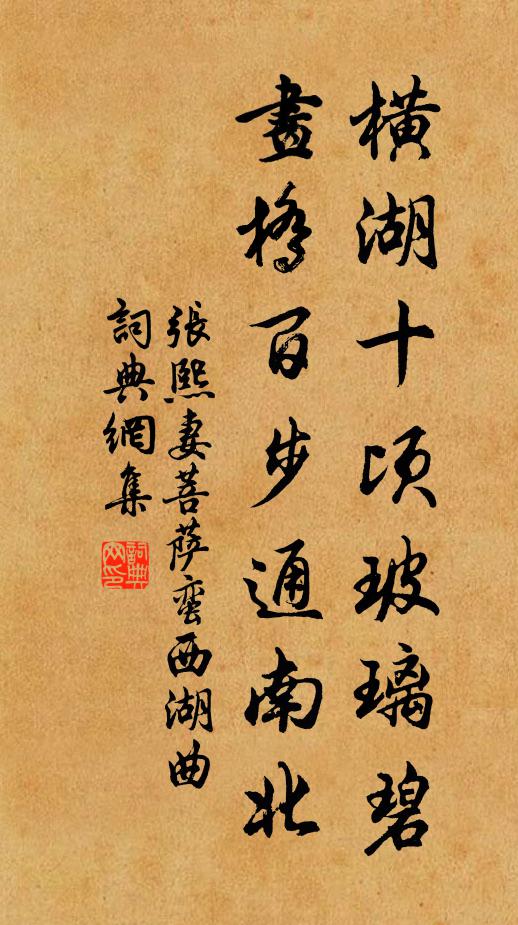 橫湖十頃玻璃碧
畫橋百步通南北
張熙妻菩薩蠻西湖曲
詞典網集
詞典网印